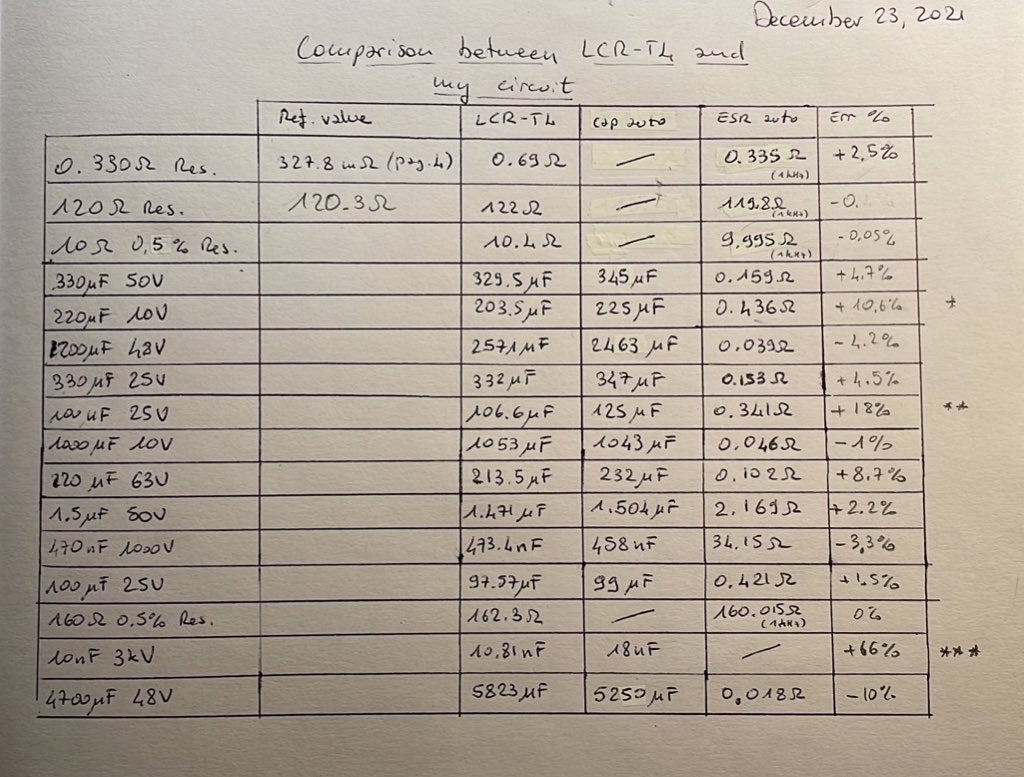 December 23, 2021
Comparison between LCR-T4 and
my circuit
Ref. value LCR-T4 Cap auto ESR auto Err %
0.330Ω Res. 327.8 mΩ (pag.4) 0.69Ω — 0.335Ω (1kHz) +2,5%
120Ω Res. 120.3Ω 122Ω — 119.8Ω (1kHz) -0.
10Ω 0,5% Res. 10.4Ω — 9,995Ω (1kHz) -0,05%
330µF 50V 329.5µF 345µF 0.159Ω +4,7%
220µF 10V 203.5µF 225µF 0.436Ω +10,6% *
2200µF 48V 2571µF 2463µF 0.039Ω -4.2%
330µF 25V 332µF 347µF 0.153Ω +4.5%
100µF 25V 106.6µF 125µF 0.341Ω +18% **
1000µF 10V 1053µF 1043µF 0.046Ω -1%
220µF 63V 213.5µF 232µF 0.102Ω +8.7%
1.5µF 50V 1.471µF 1.504µF 2.169Ω +2.2%
470nF 1000V 473.4nF 458nF 34.15Ω -3,3%
100µF 25V 97.57µF 99µF 0.421Ω +1.5%
160Ω 0.5% Res. 162.3Ω — 160.015Ω (1kHz) 0%
10nF 3kV 10.81nF 18nF — +66% ***
4700µF 48V 5823µF 5250µF 0,018Ω -10%